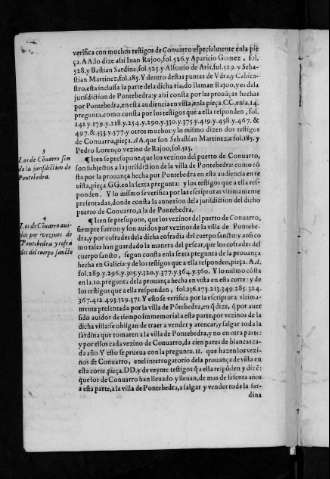 verifica con muchos testigos de Conuarro especialmente en la pie
ça. AA do dize ahi Iuan Rajoo, fol. 526. y Aparicio Gomez. fol.
528. y Bastian Sardina, fol. 525. y Alfonso de Aris, fol. 529. y Sebas
tian Martinez, fol. 185. Y dentro destas puntas de Vdra, y Cabicas
tro, esta inclusa la parte desta dicha
jurisdicion de Pontebedra y ahi consta por las prouanças hechas
por Pontebedra, en esta audiencia en vista, en la pieça CC. en la. 14.
pregunta. como consta por los testigos que a ella responden, fol.
497. & 533. y 577. y otros muchos: y lo mismo dizen dos testigos
de Conuarro, pieça. AA. que son Sebastian Martinez fol. 185. y
Pedro Lorenço vezino de Rajoo, fol. 315.
3
Los de Cōuarro son
de la jurisdiction de
Pontebedra.
¶ Iten se presupone que los vezinos del puerto de Conuarro,
son subjectos a la jurisdicion de la villa de Pontebedra: como cō
sta por la prouança hecha por Pontebedra en esta audiencia en
vista, pieça, GG. en la sexta pregunta y los testigos que a ella res-
ponden. Y lo mismo se verifica por las escripturas vltimamente
presentadas, donde consta la anexion del la jurisdicion del dicho
puerto de Conuarro, a la de Pontebedra.
4
Los de Cōuarro aui
dos por vezinos de
Pontebedra y cofra
des del cuerpo sancto
¶ Iten se presupone, que los vezinos del puerto de Conuarro,
siempre fueron y son auidos por vezinos de la villa de Pontebe-
dra, y por cofrades de la dicha cofradia del cuerpo sancto, y assi co
mo tales han guardado la manera del pescar, que los cofrades del
cuerpo sancto, segun consta en la sexta pregunta de la prouança
hecha en Galicia y de los testigos que a ella responden, pieça. A.
fol. 289. y 296. y 305. y 320. y 377. y 364. y 360. Y lo mismo cōsta
en la. 10. pregunta de la prouança hecha en vista en esta corte: y de
los testigos que a ella responden, fol. 256. 273. 213. 349. 285. 324.
367. 412. 493. 529. 571. Y esto se verifica por la escriptura vltima-
mente presentada por la villa de Pōtebedra, en q̄ dize, q̄ por auer
sido auidos de tiempo immemorial a esta parte, por vezinos de la
dicha villa: se obligan de traer a vender y atrencar, y salgar toda la
sardina que tomaren a la villa de Pontebedra, y no en otra parte:
y por esso en cada vezino de Conuarro, da cien pares de blancas ca-
da año. Y esto se prueua con la pregunta. 11. que hazen los vezi-
nos de Conuarro, en el interrogatorio de la prouança de vista en
esta corte, pieça. DD. y de veynte testigos q̄ a ella respōden y dizē:
que los de Conuarro han lleuado y lleuan, de mas de sesenta años
a esta parte, a la villa de Pontebedra, a salgar y vender toda la sar-
dina